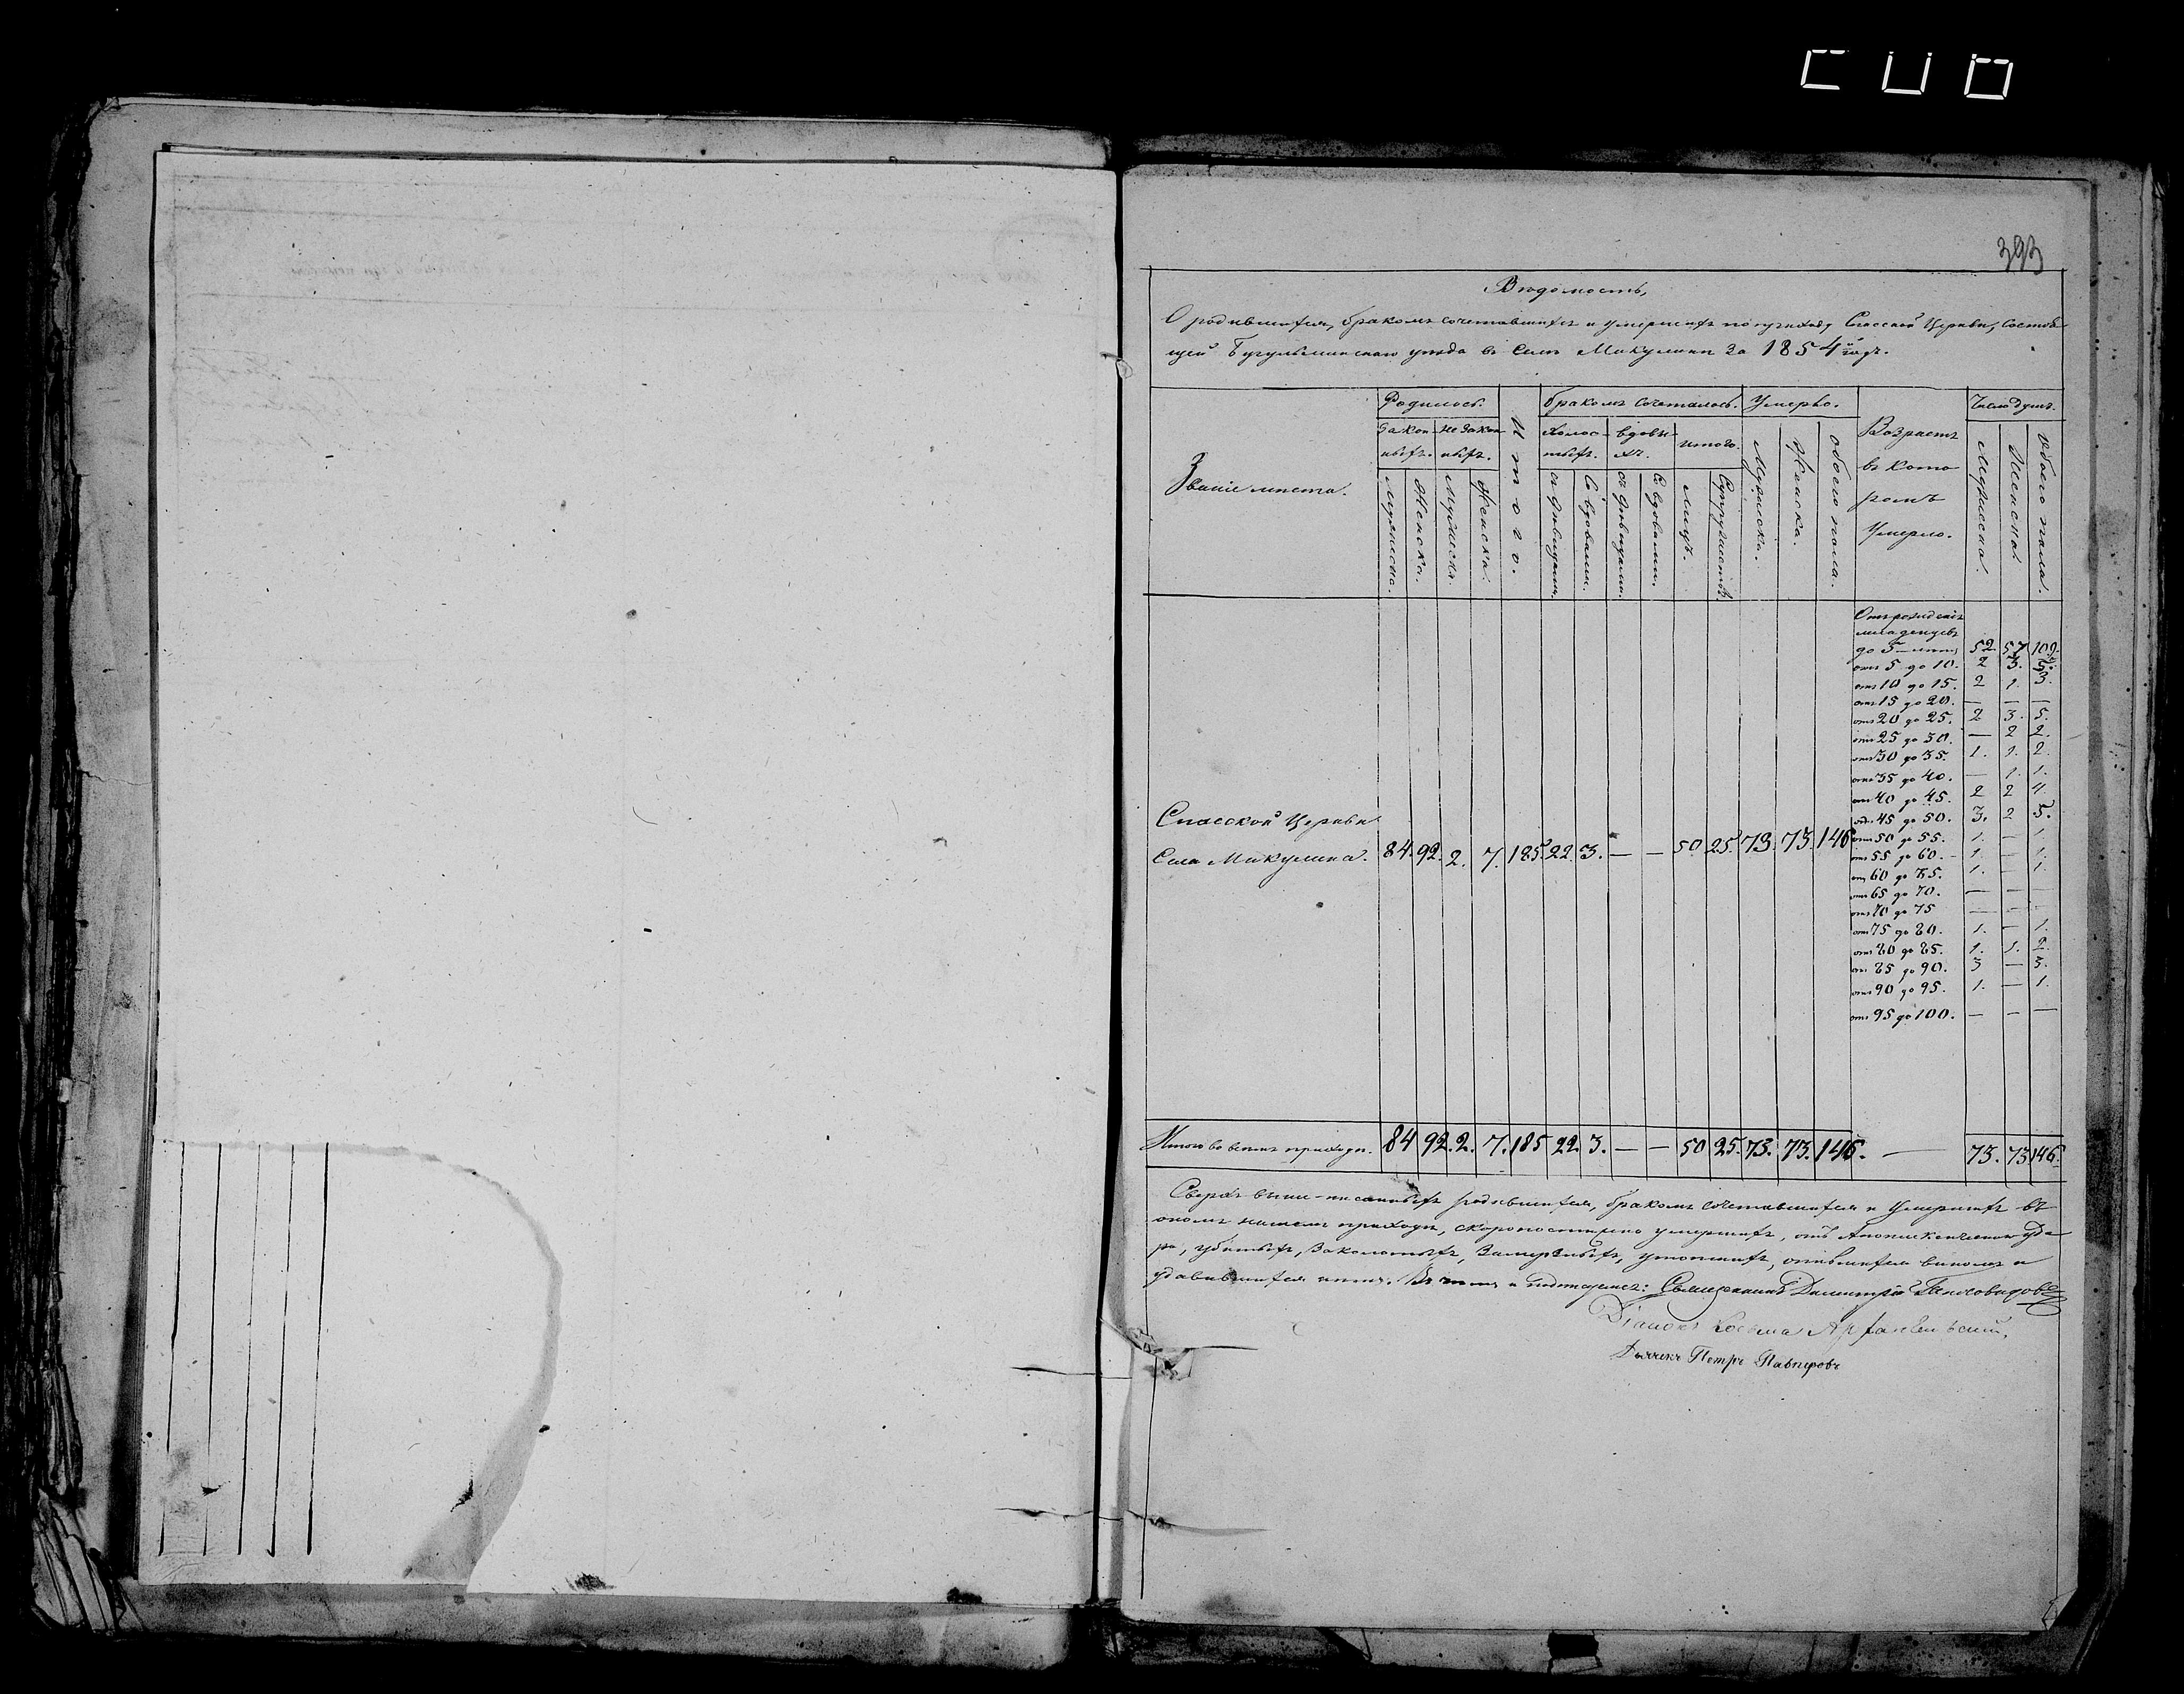 393
Вѣдомость,
О родившихся, бракомъ сочетавшихся и умершихъ по приходу Спасской Церкви, состоя-
щей Бугульминскаго уѣзда въ селѣ Микулинѣ за 1854й годъ.
Званіе мѣста. Родилось. Итого. Бракомъ сочеталось. Умерло. Возрастъ въ кото ромъ умерло. Число душъ.
Закон- ныхъ. Незакон ныхъ. Холос- тыхъ. вдовы- хъ. итого.
Мужеска. Женска. Мужеска. Женска. съ дѣвицами. Со вдовами. съ дѣвицами. Со вдовами. Лицъ. Супружествъ. Мужеска. Женска. Обоего пола. Мужеска. Женска. Обоего пола.
Отъ рожденія
младенцевъ
до 5-лѣтъ 52. 57. 109.
отъ 5 до 10. 2 3. 5.
отъ 10 до 15. 2 1. 3.
отъ 15 до 20. — — —
отъ 20 до 25. 2 3. 5.
отъ 25 до 30. — 2 2.
отъ 30 до 35. 1. 1. 2.
отъ 35 до 40. — 1. 1.
отъ 40 до 45. 2 2 4.
отъ 45 до 50. 3. 2 5.
отъ 50 до 55. 1. — 1.
отъ 55 до 60. 1. — 1.
отъ 60 до 65. 1. — 1.
отъ 65 до 70. — — —
отъ 70 до 75 — — —
отъ 75 до 80. 1. — 1.
отъ 80 до 85. 1. 1. 2.
отъ 85 до 90. 3 — 3.
отъ 90 до 95. 1. — 1.
отъ 95 до 100. — — —
Спасской Церкви
Села Микулина. 84. 92. 2. 7. 185. 22. 3. — — 50 25. 73. 73. 146
Итого во всемъ приходѣ. 84 92. 2. 7. 185 22. 3. — — 50 25. 73. 73. 146. — 73. 73. 146.
Сверхъ выше-писанныхъ родившихся, бракомъ сочетавшихся и умершихъ въ
ономъ нашемъ приходѣ, скоропостижно умершихъ, отъ Апоплексическаго уда-
ра, убитыхъ, Заколотыхъ, Замерзлыхъ, утопшихъ, опившихся виномъ и
удавившихся нѣтъ. Въ томъ и подписуемся: Священникъ Димитрій
Діаконъ Косьма Архангельскій.
Дьячекъ Петръ